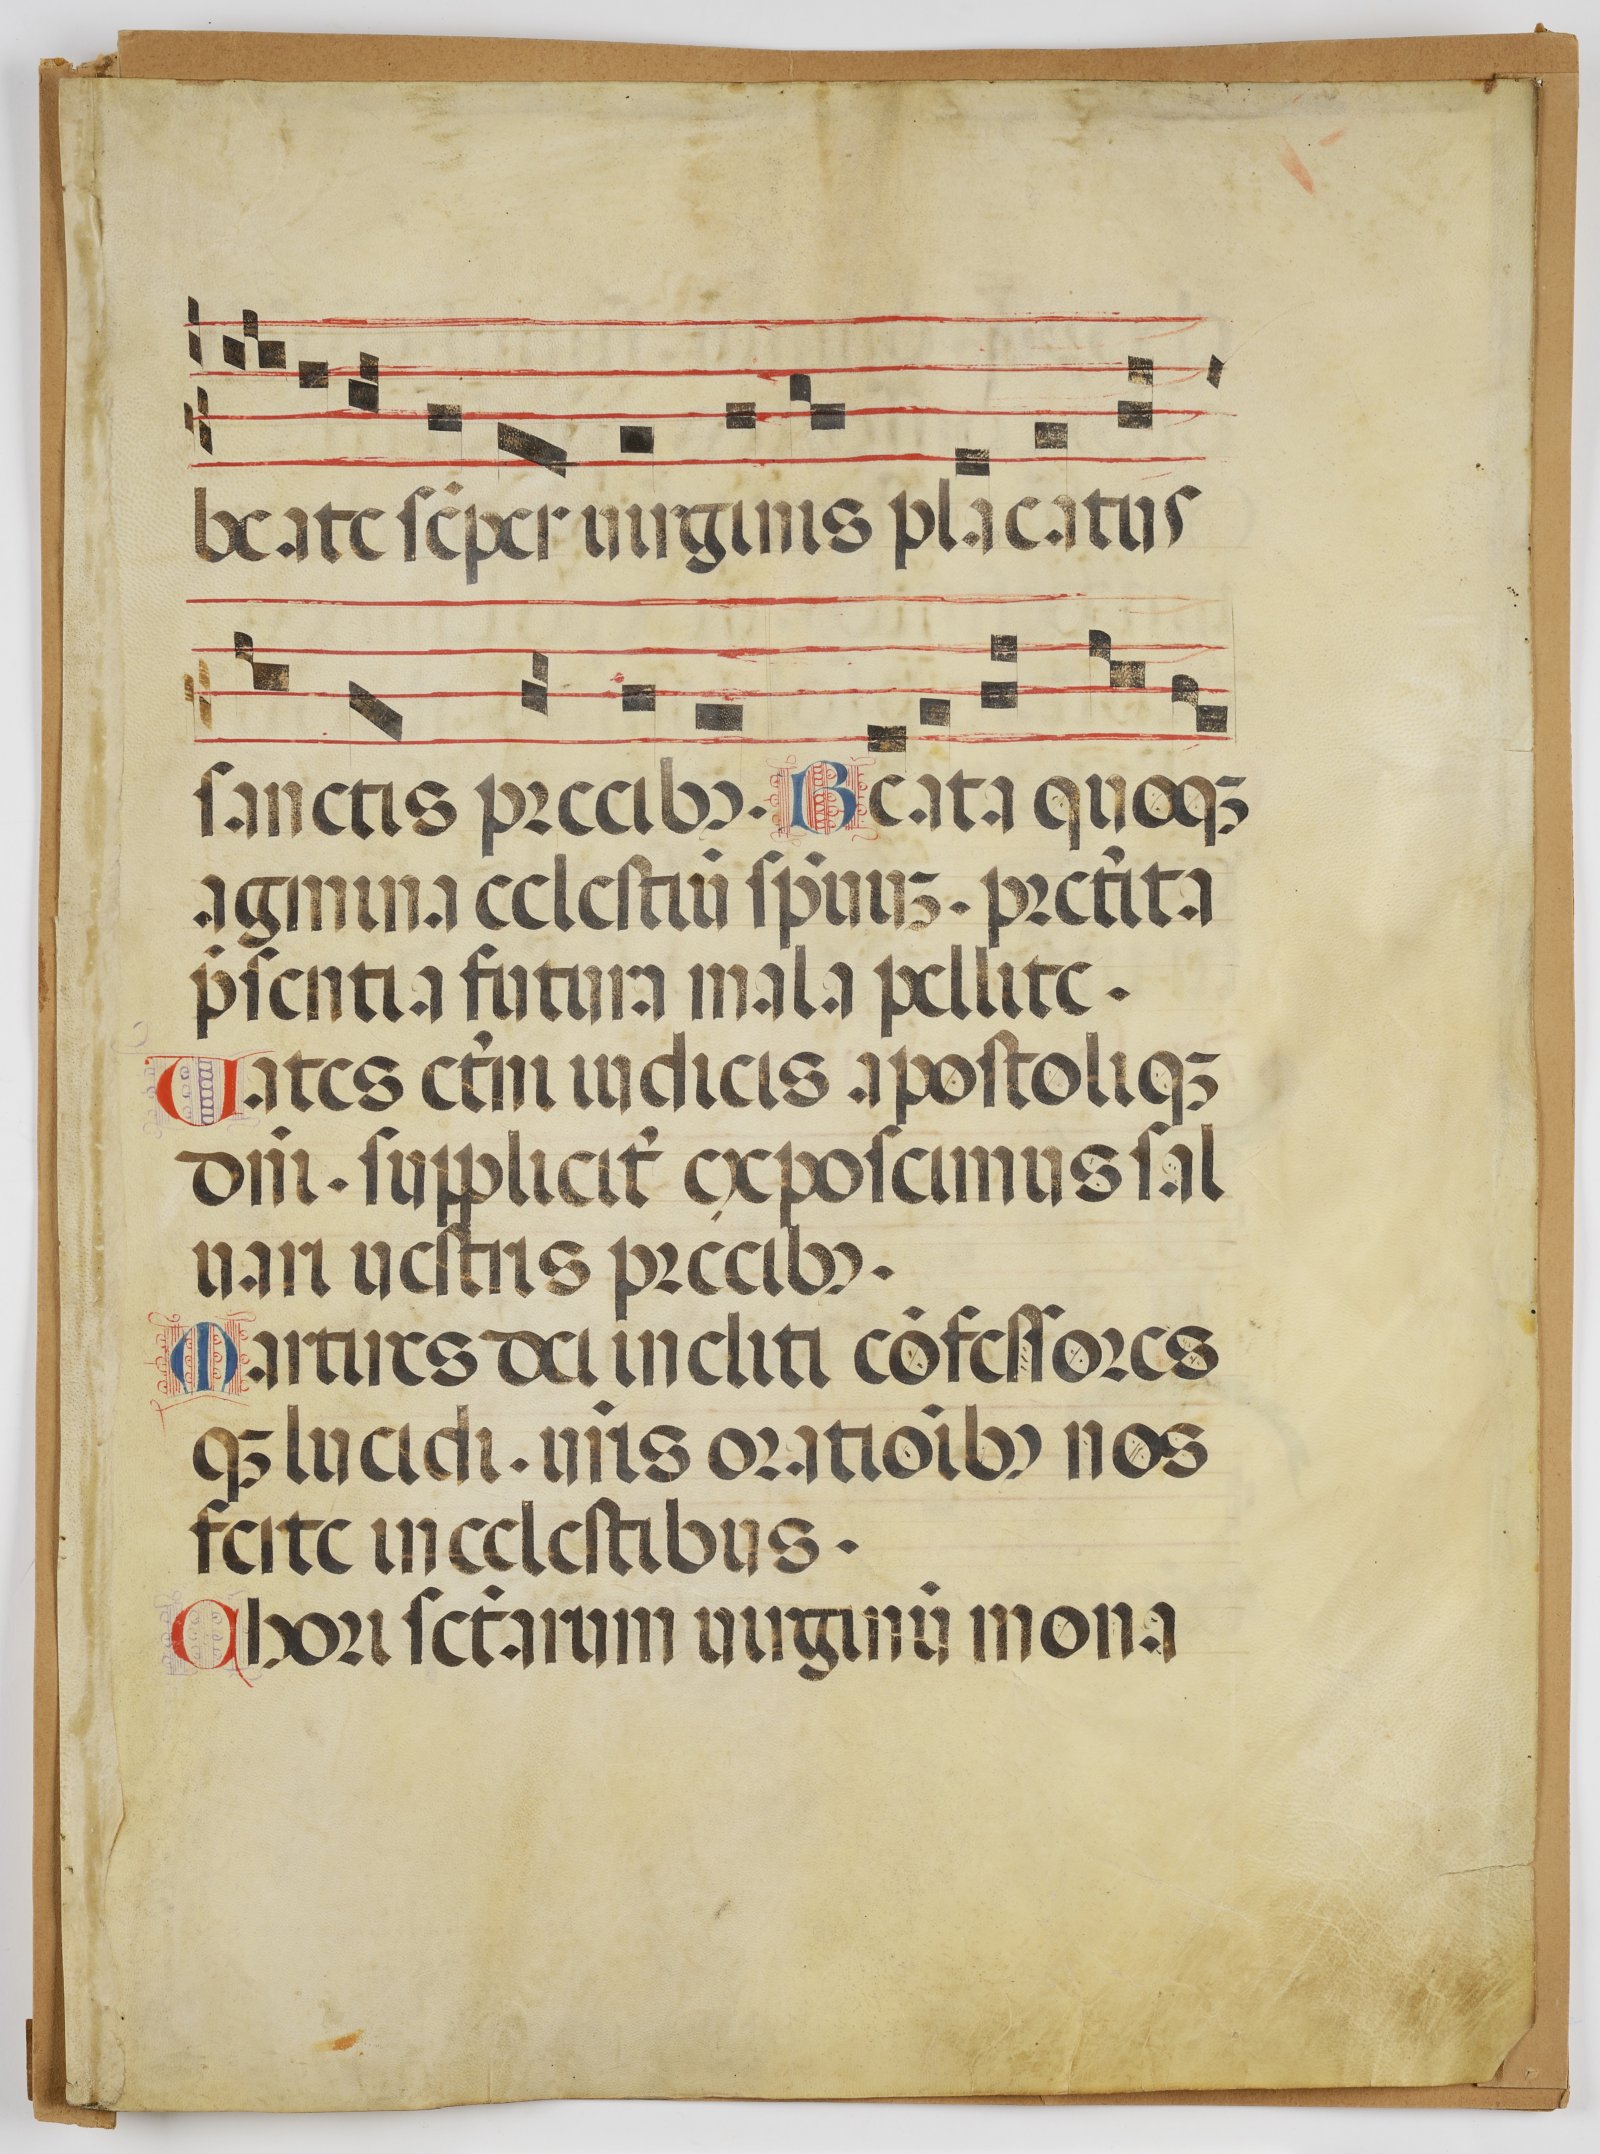 beate sēper uirginis placatus
sanctis precibꝰ. Beata quoqꝫ
agmina celestiū sp̄uuꝫ. pret̄ita
p̄sentia futura mala pellite.
Uates et̄ni iudicis apostoliqꝫ
dn̄i. supplicit̄ exposcimus sal
uari uestris precibꝰ.
Martires dei incliti cōfessores
qꝫ lucidi. ur̄is oratiōibꝰ nos
ferte in celestibus.
Chori sct̄arum uirginū mona